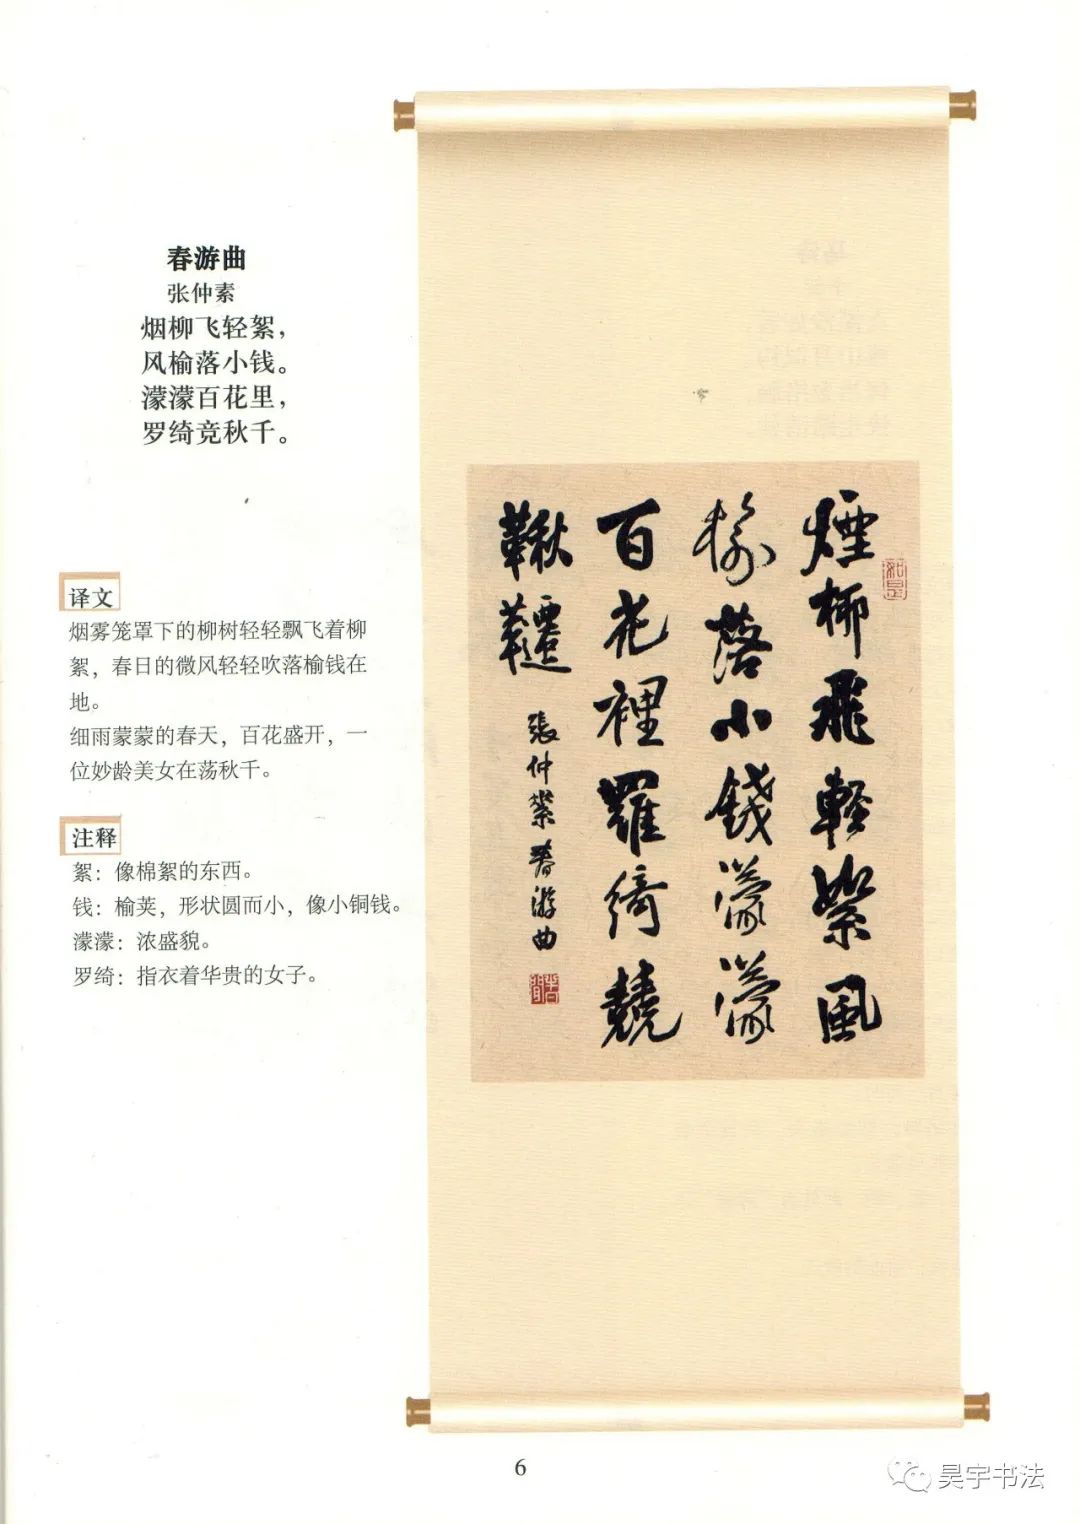 春游曲
张仲素
烟柳飞轻絮，
风榆落小钱。
濛濛百花里，
罗绮竞秋千。
译文
烟雾笼罩下的柳树轻轻飘飞着柳
絮，春日的微风轻轻吹落榆钱在
地。
细雨蒙蒙的春天，百花盛开，一
位妙龄美女在荡秋千。
注释
絮：像棉絮的东西。
钱：榆荚，形状圆而小，像小铜钱。
濛濛：浓盛貌。
罗绮：指衣着华贵的女子。
煙柳飛輕絮風
榆落小錢濛濛
百花裡羅綺競
鞦韆
張仲縈春游曲
如是
6
昊宇书法